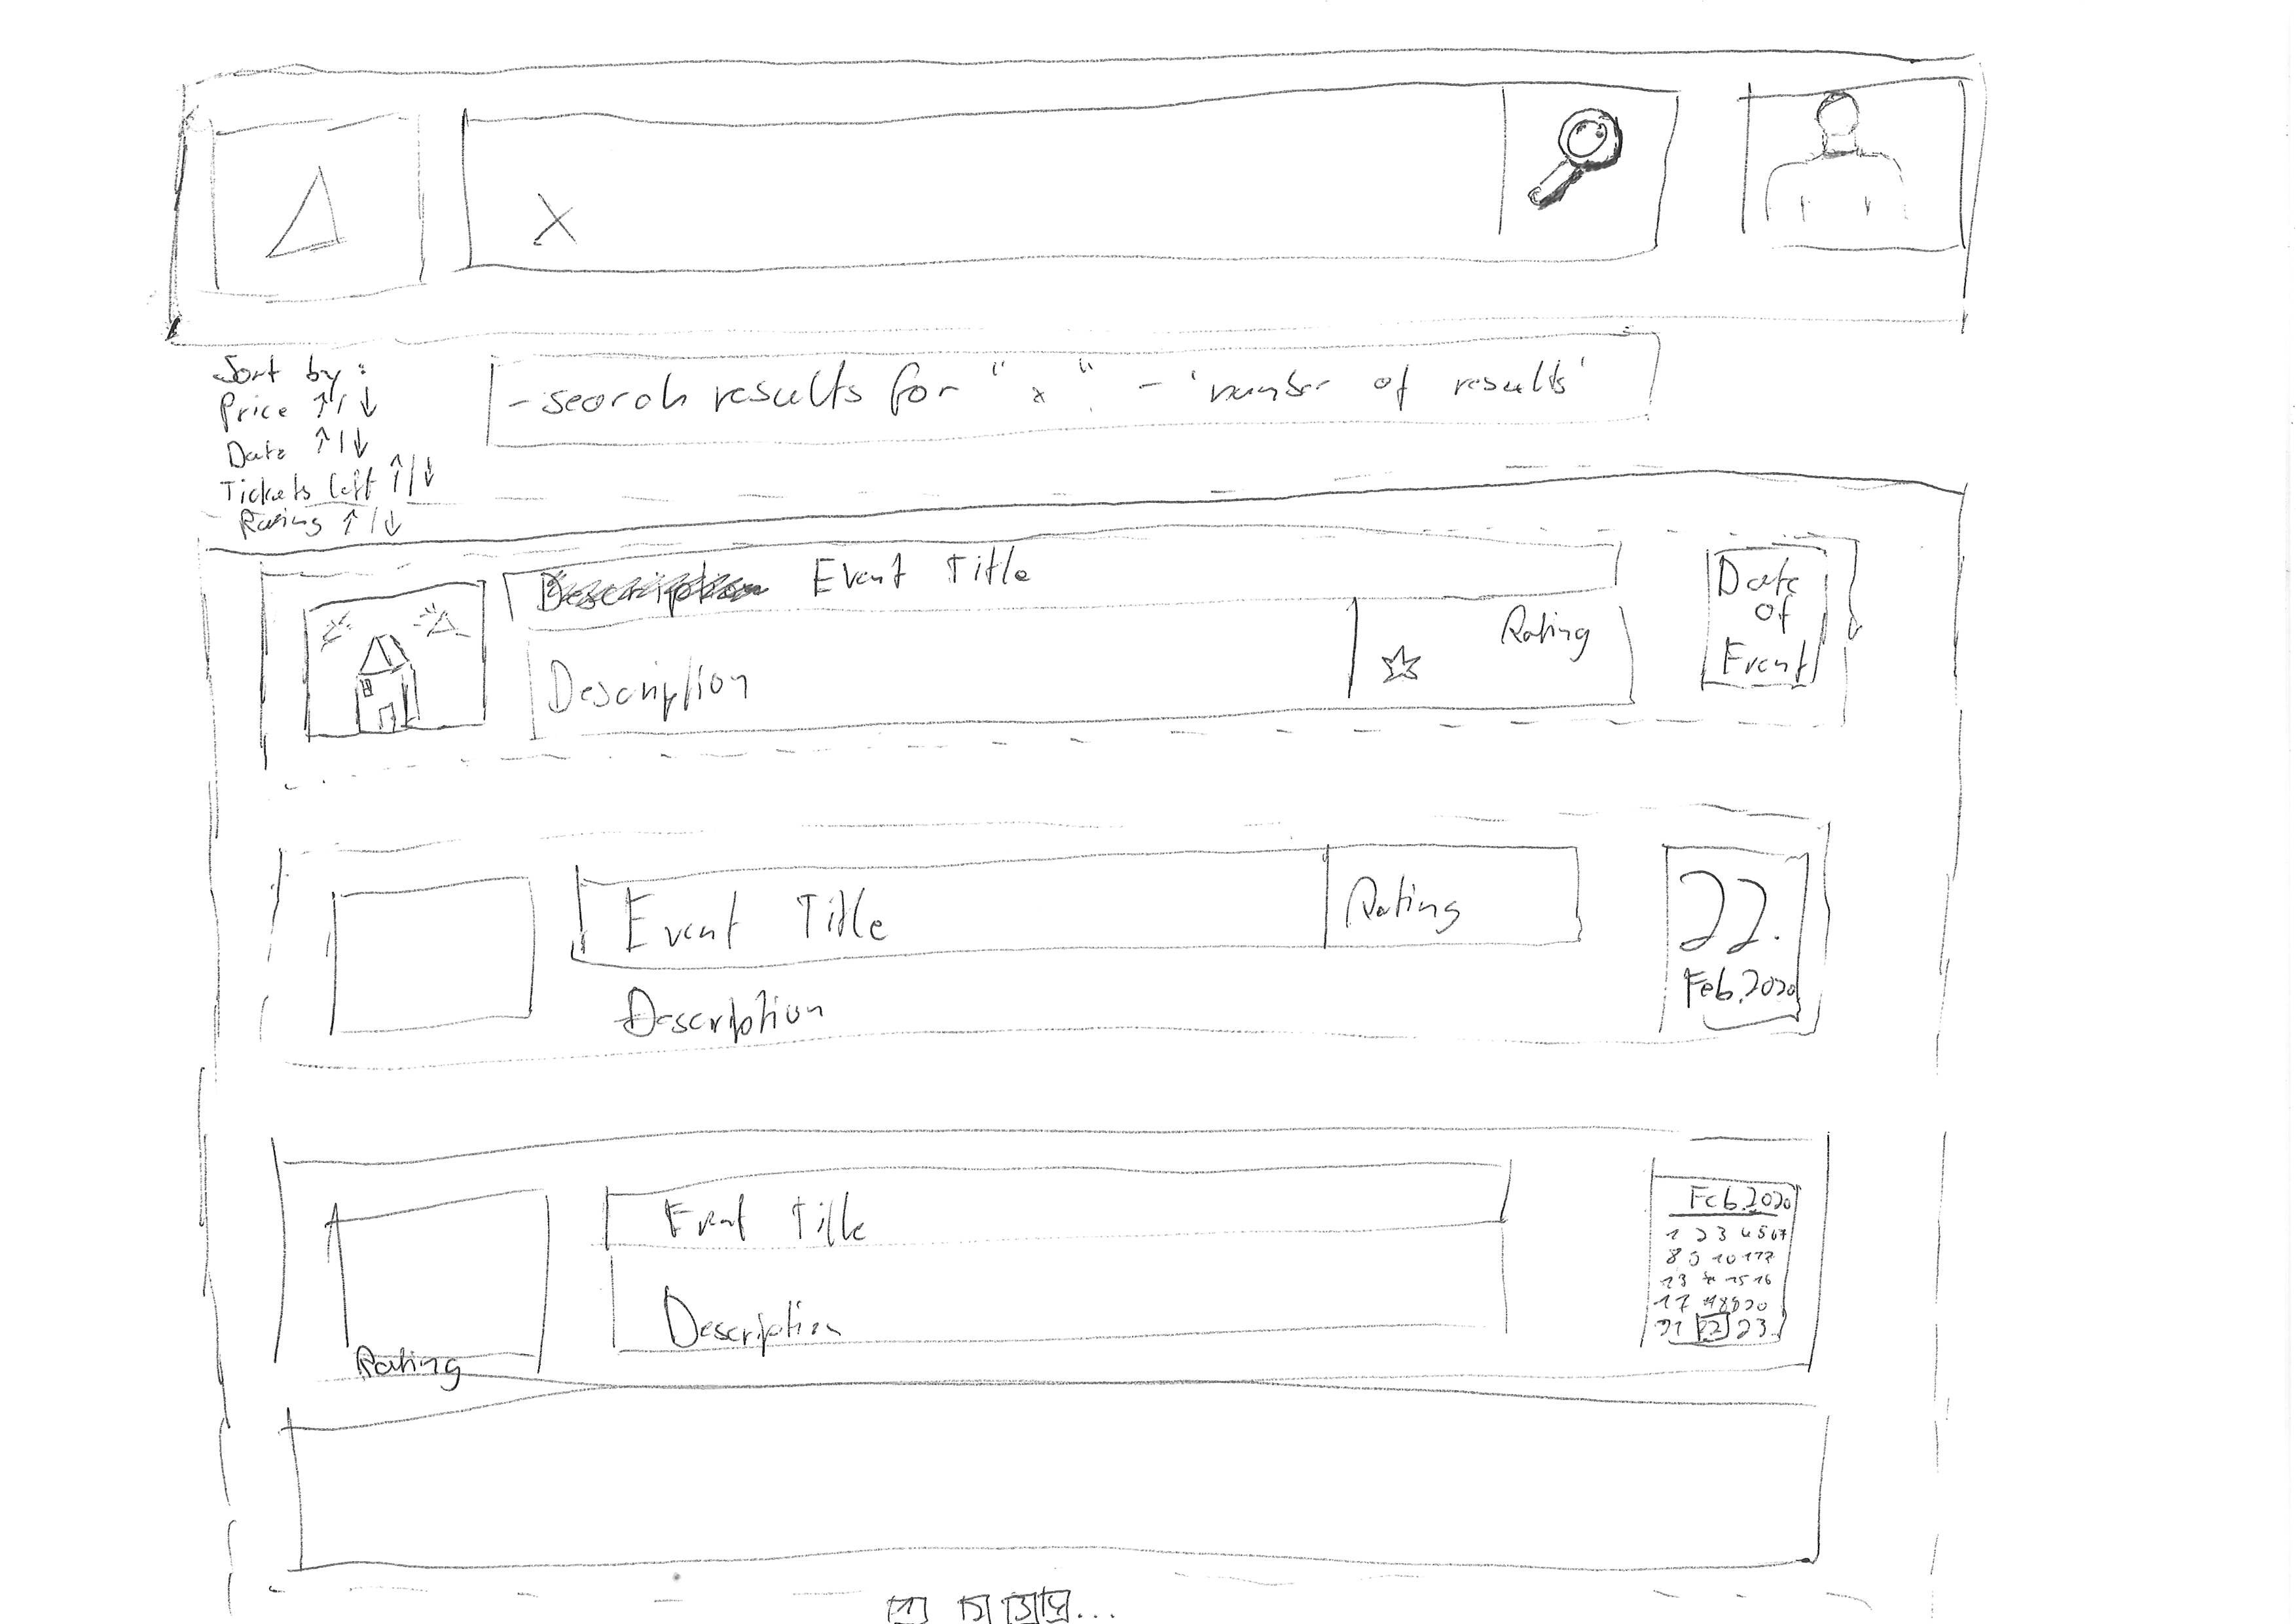 X
Sort by :
Price ↑/↓
Date ↑/↓
Tickets left ↑/↓
Rating ↑/↓
- search results for "x" - 'number of results'
Event Title
Description
Rating
Date
of
Event
Event Title
Rating
Description
22.
Feb. 2020
Event Title
Description
Rating
Feb. 2020
1 2 3 4 5 6 7
8 9 10 11 12
13 14 15 16
17 18 19 20
21 22 23
1 2 3 4 ...